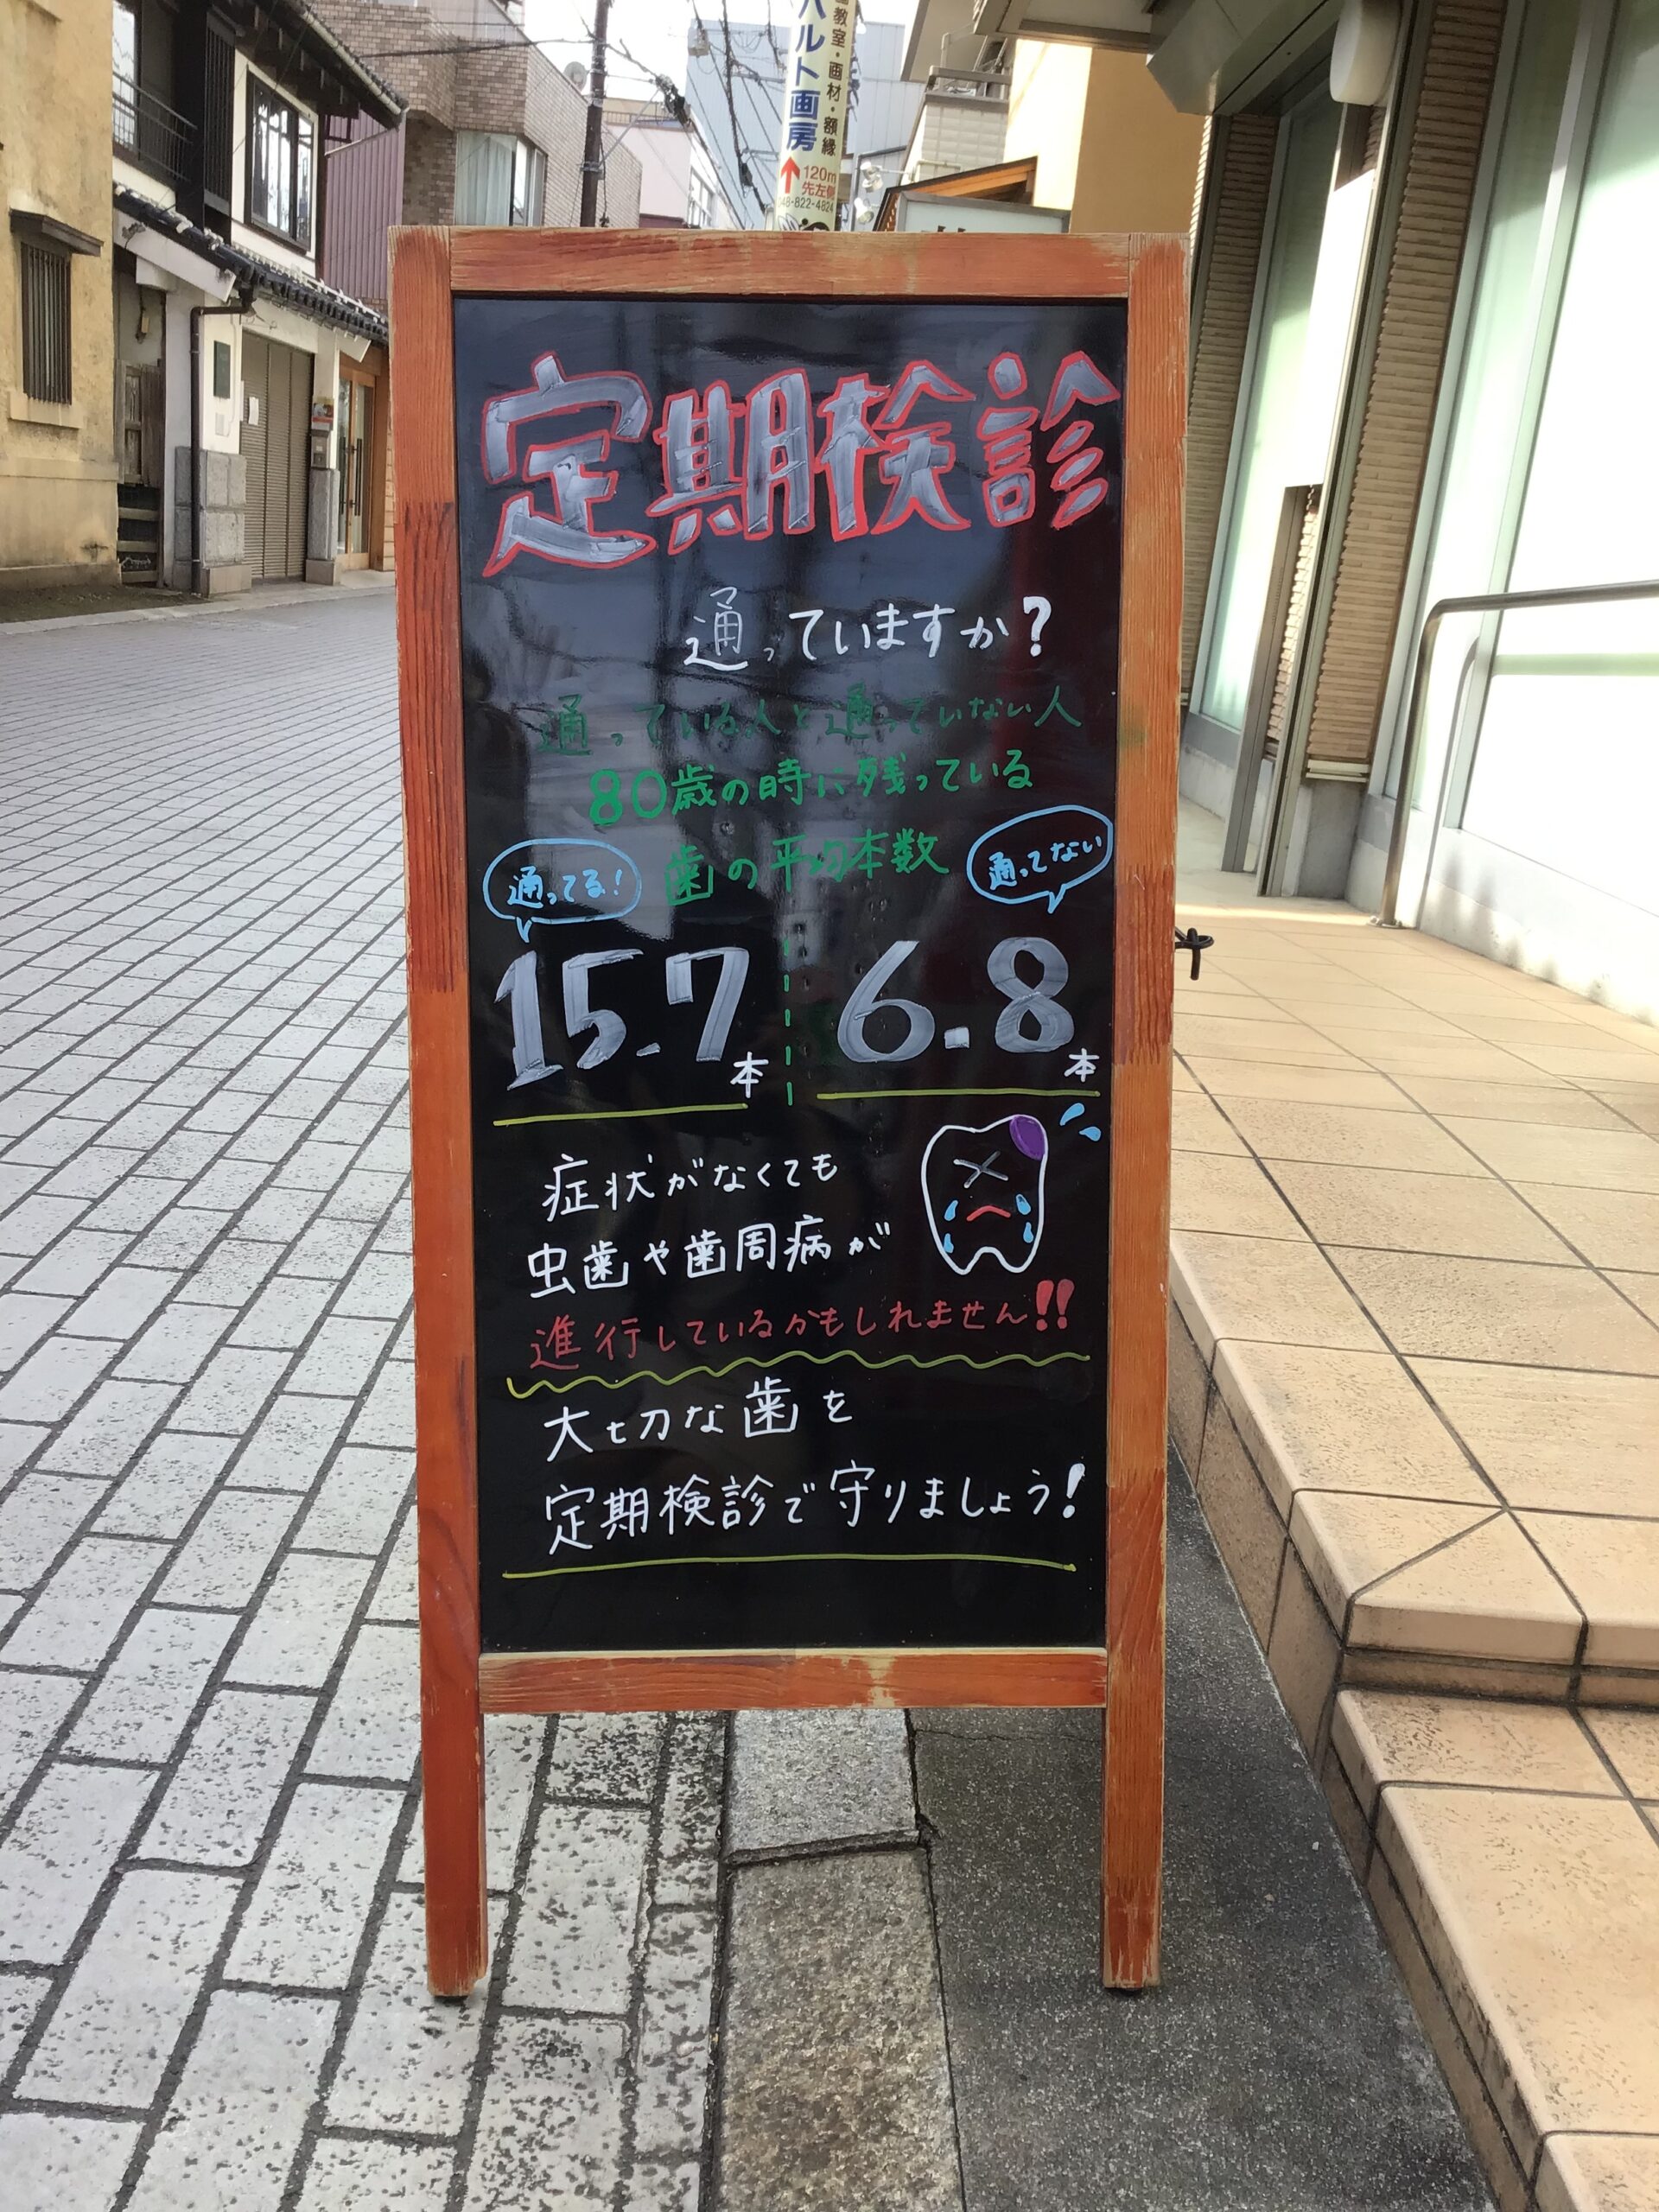 ハルト画房
教室・画材・額縁
120m
先左側
48-822-4824
定期検診
通っていますか?
通っている人と通っていない人
80歳の時に残っている
歯の平均本数
通ってる!
通ってない
15.7本
6.8本
症状がなくても
虫歯や歯周病が
進行しているかもしれません!!
大切な歯を
定期検診で守りましょう!